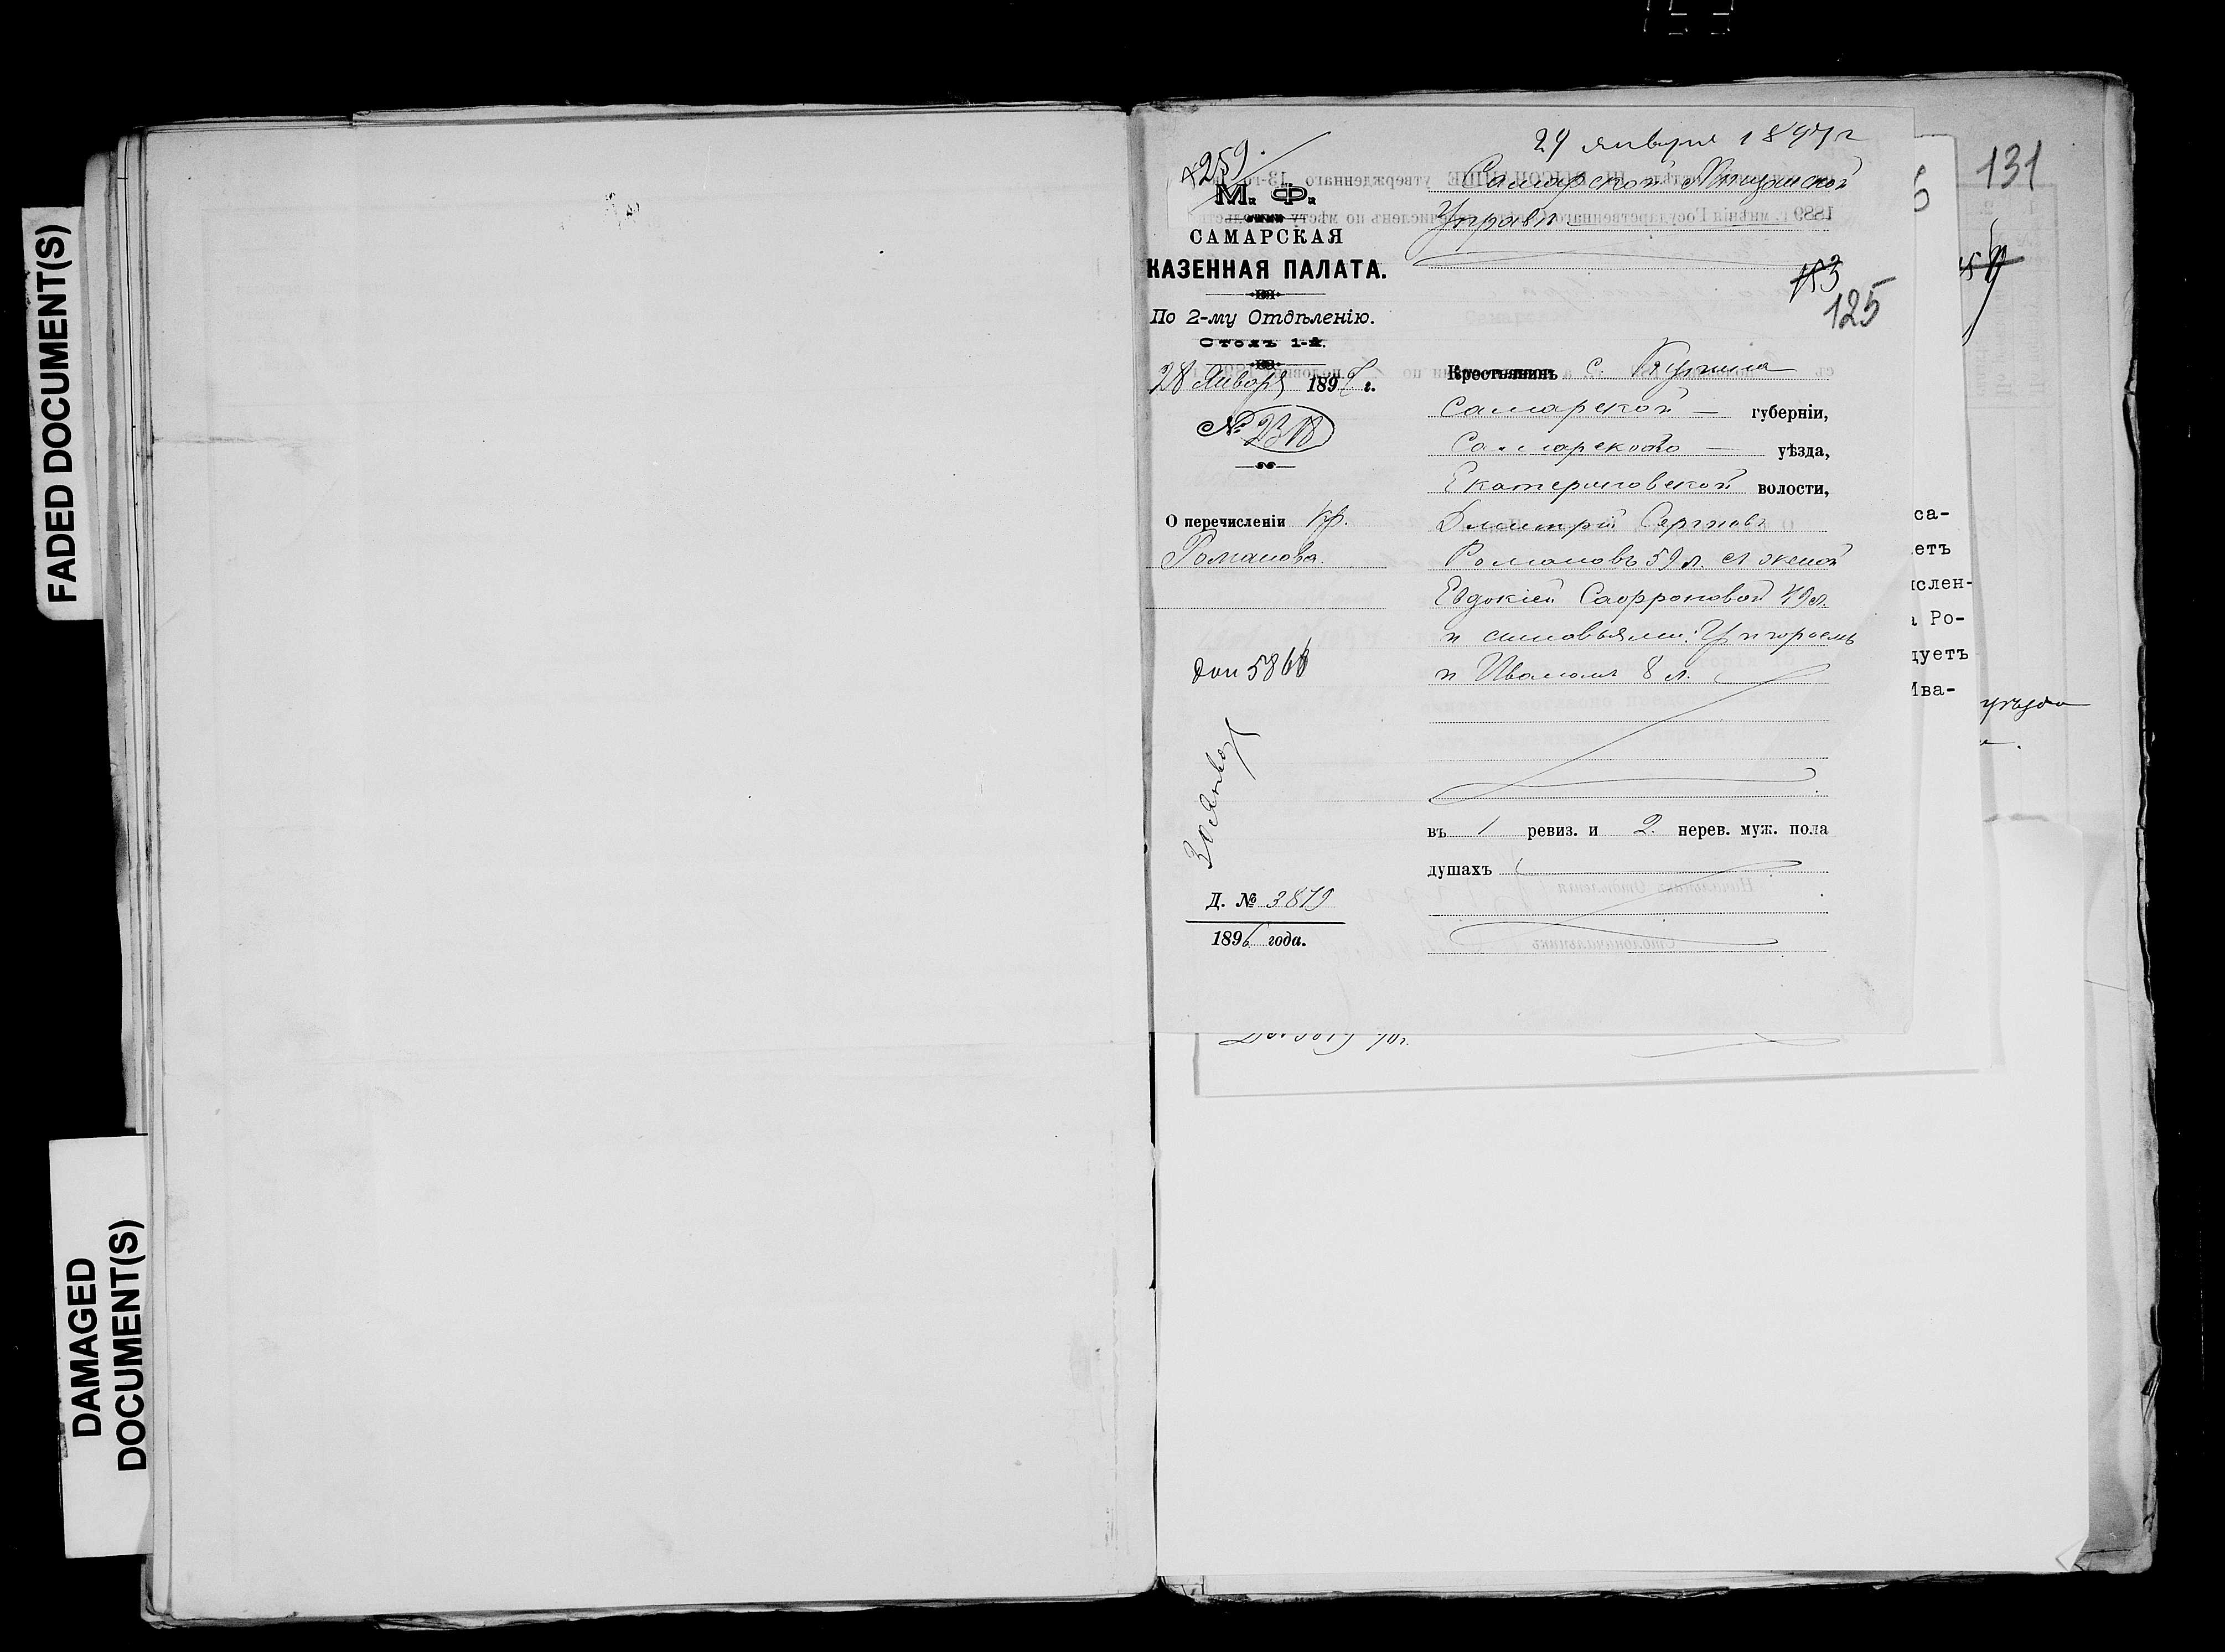 FADED DOCUMENT(S)
DAMAGED
DOCUMENT(S)
259.
М. Ф.
САМАРСКАЯ
КАЗЕННАЯ ПАЛАТА.
По 2-му Отдѣленію.
Столъ 1-й.
28 Января 1897 г.
№ 2318
О перечисленіи кр.
Романова.
30 Января
Д. № 3879
1896 года.
29 января 1897 г
Самарской Мѣщанской
Управѣ
153
125
Крестьянинъ с.
Самарской губерніи,
Самарского уѣзда,
Екатериновской волости,
Дмитрій Сергѣевъ
Романовъ 59 л. съ женой
Евдокіей Сафроновой 49 л.
и сыновьями: Григорьемъ
и Иваномъ 8 л.
въ 1 ревиз. и 2 нерев. муж. пола
душахъ
131
са-
етъ
ислен-
Ро-
дуетъ
Ива-
уѣзда